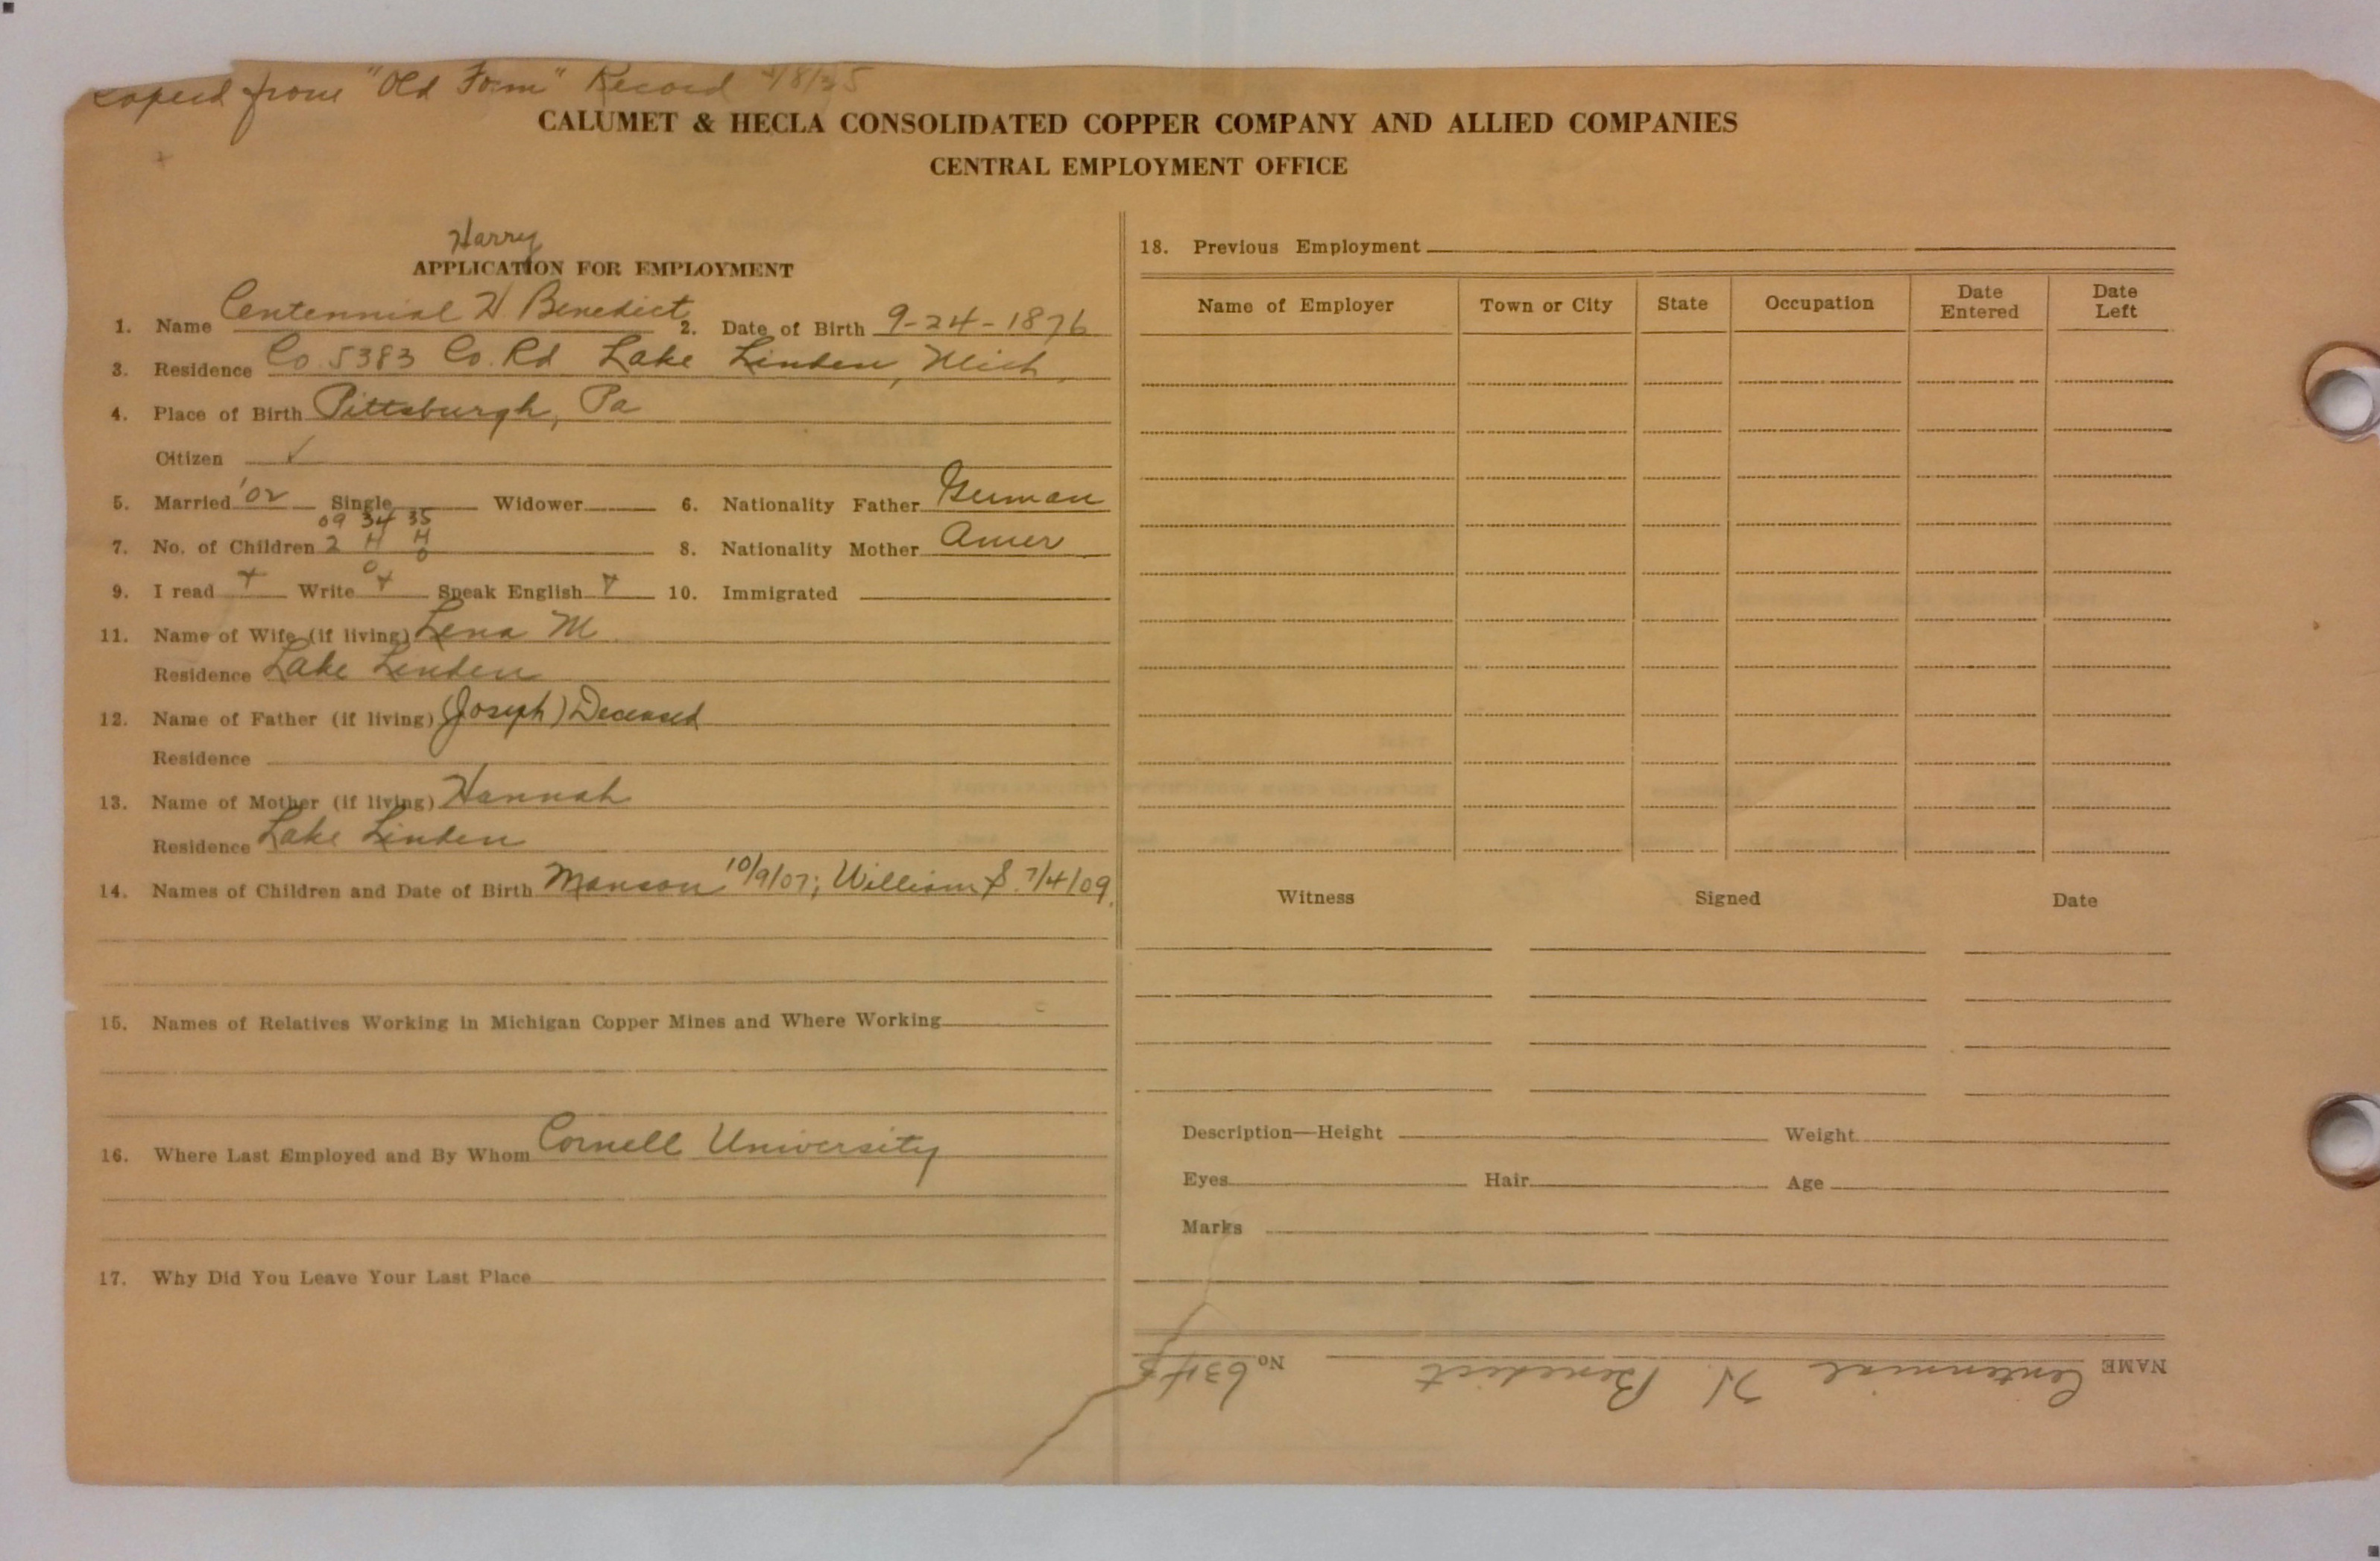 Copied from "Old Form" Record 4/8/35
CALUMET & HECLA CONSOLIDATED COPPER COMPANY AND ALLIED COMPANIES
CENTRAL EMPLOYMENT OFFICE
Harry
APPLICATION FOR EMPLOYMENT
1. Name Centennial H. Benedict 2. Date of Birth 9-24-1876
3. Residence Co. 5383 Co. Rd Lake Linden, Mich.
4. Place of Birth Pittsburgh, Pa
Citizen ✓
5. Married '02 Single Widower 6. Nationality Father German
09 34 35
7. No. of Children 2 H H 8. Nationality Mother Amer
0 0
9. I read + Write + Speak English + 10. Immigrated
11. Name of Wife (if living) Lena M
Residence Lake Linden
12. Name of Father (if living) (Joseph) Deceased
Residence
13. Name of Mother (if living) Hannah
Residence Lake Linden
14. Names of Children and Date of Birth Manson 10/9/07; William S. 7/4/09.
15. Names of Relatives Working in Michigan Copper Mines and Where Working
16. Where Last Employed and By Whom Cornell University
17. Why Did You Leave Your Last Place
18. Previous Employment
Name of Employer Town or City State Occupation Date Entered Date Left
Witness Signed Date
Description—Height Weight
Eyes Hair Age
Marks
NAME Centennial H. Benedict No.